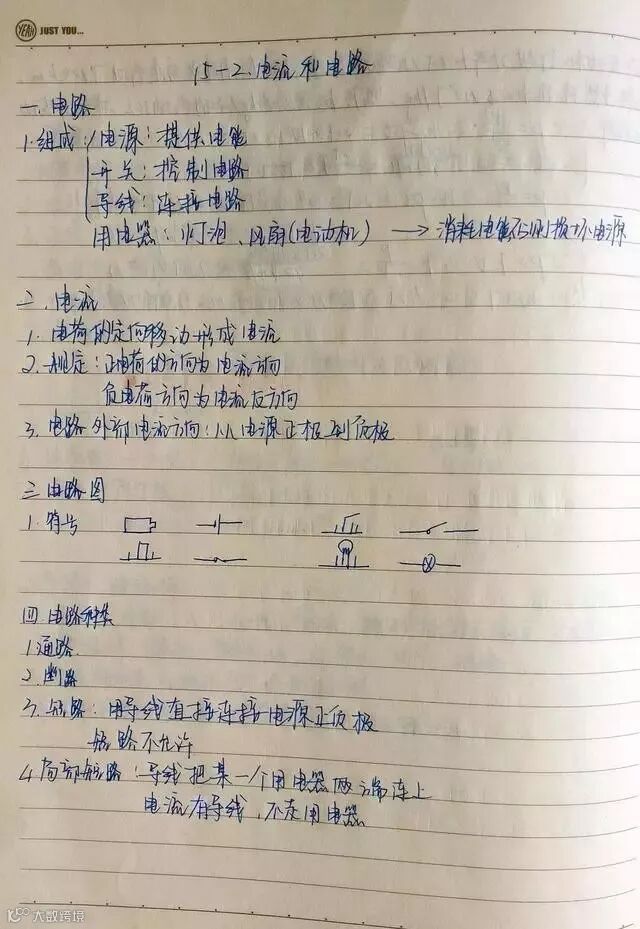 JUST YOU...
15-2. 电流和电路
一. 电路
1. 组成: 电源: 提供电能
开关: 控制电路
导线: 连接电路
用电器: 灯泡、风扇(电动机) → 消耗电能 否则损坏电源
二. 电流
1. 电荷的定向移动形成电流
2. 规定: 正电荷的方向为电流方向
负电荷方向为电流反方向
3. 电路外部电流方向: 从电源正极到负极
三 电路图
1. 符号
四. 电路种类
1 通路
2. 断路
3. 短路: 用导线直接连接电源正负极
短路不允许
4. 局部短路: 导线把某一个用电器两端连上
电流有导线, 不走用电器
大数跨境